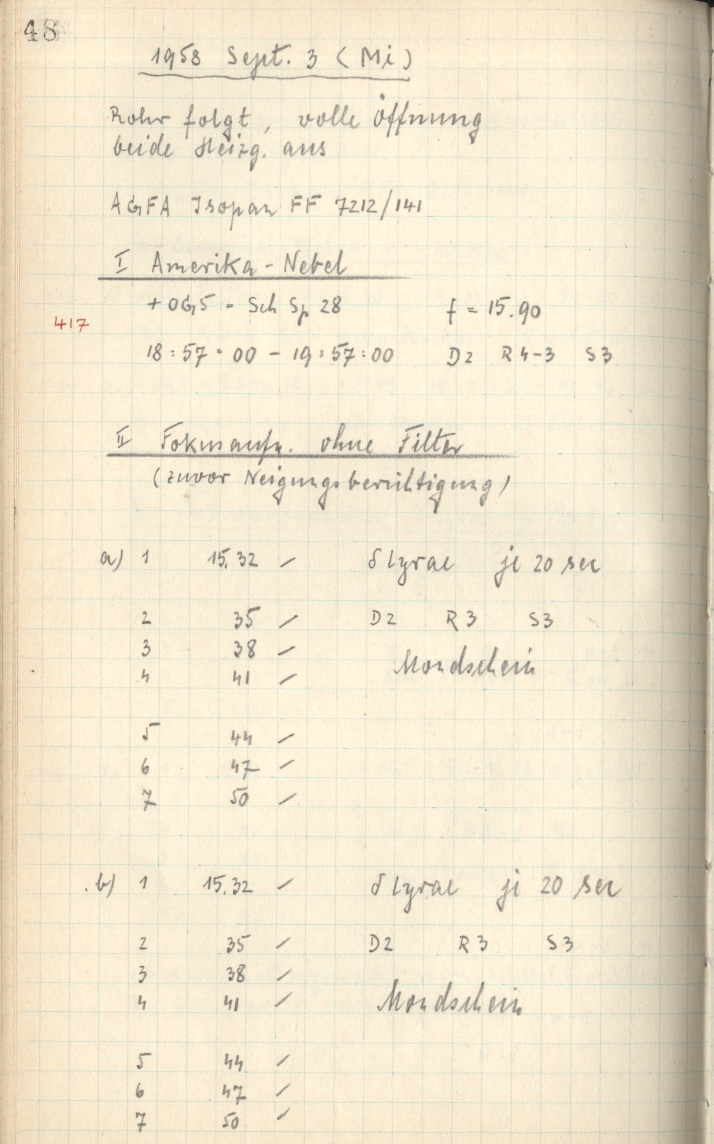 48
1958 Sept. 3 (Mi)
Rohr folgt, volle Öffnung
beide Heizg. aus
AGFA Isopan FF 7212/141
I Amerika-Nebel
+ OG5 - Sch Sp 28 f = 15.90
417
18:57:00 - 19:57:00 D2 R4-3 S3
II Fokusaufn. ohne Filter
(zuvor Neigungsberichtigung)
a) 1 15.32 ✓ δ Lyrae je 20 sec
2 35 ✓ D2 R3 S3
3 38 ✓ Mondschein
4 41 ✓
5 44 ✓
6 47 ✓
7 50 ✓
b) 1 15.32 ✓ δ Lyrae je 20 sec
2 35 ✓ D2 R3 S3
3 38 ✓
4 41 ✓ Mondschein
5 44 ✓
6 47 ✓
7 50 ✓